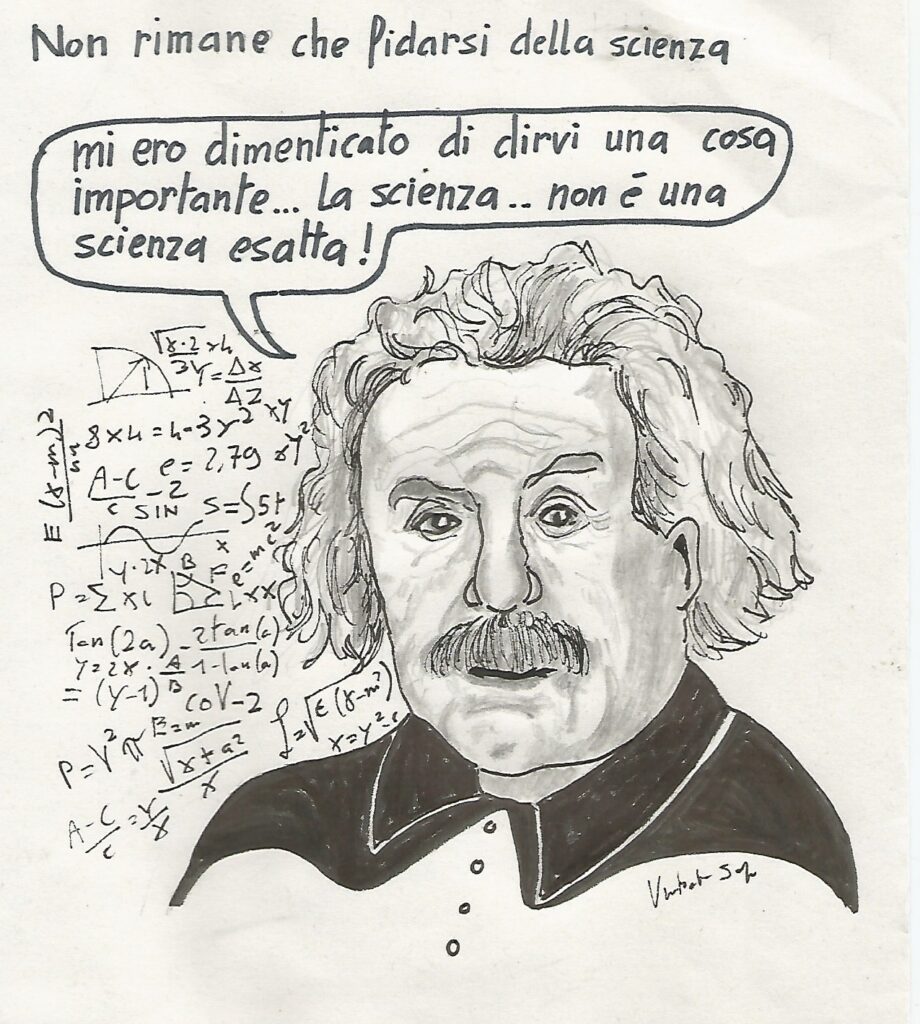 Non rimane che fidarsi della scienza
mi ero dimenticato di dirvi una cosa
importante... La scienza.. non è una
scienza esatta!
√x·2 x4
3
Y=Δx
ΔZ
8x4=4-3y² xy
A-C
c
e=2,79
-2
SIN
S=∫St
xy²
E(x-m)²
x
e=mc²
y·2x
B
F
P=∑xi
Tan(2a)
-2tan(a)
y=2x·A
B
1-tan(a)
=(y-1)
COV-2
P=V²π
E=m
√x+a²
x
∫=√E(x-m²)
x=y²-c
A-C
c
=y
x